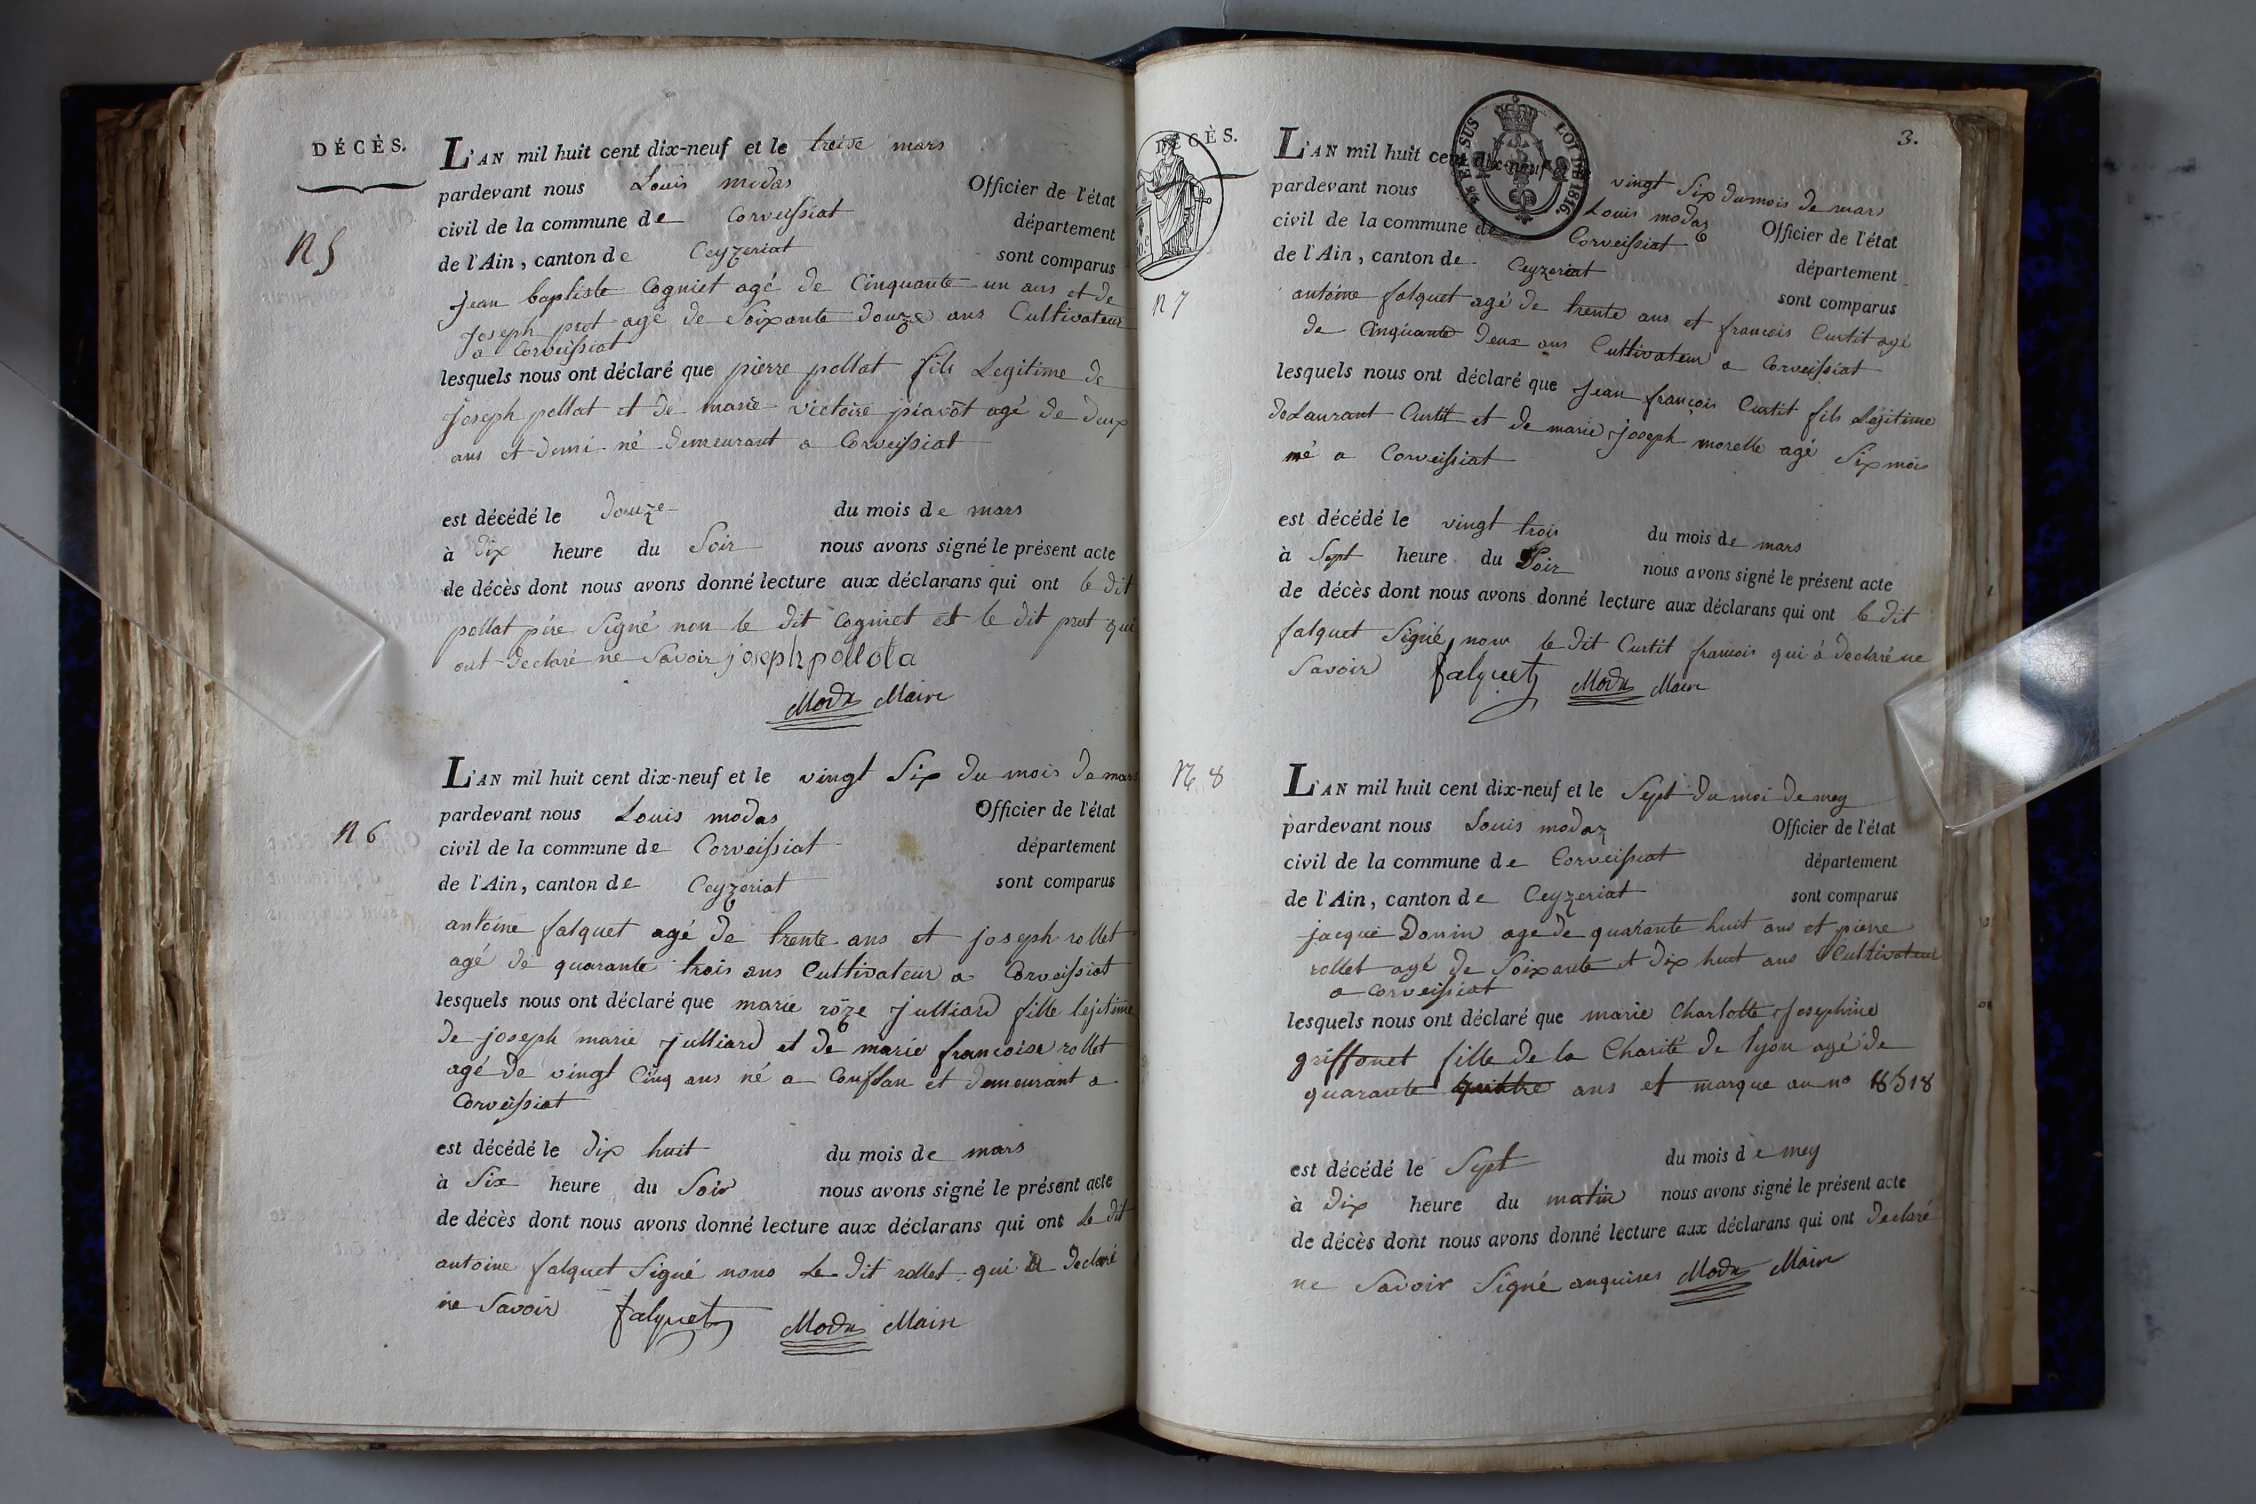 DÉCÈS.
N 5
L'AN mil huit cent dix-neuf et le treise mars
pardevant nous Louis modas Officier de l'état
civil de la commune de Corveissiat département
de l'Ain, canton de Ceyzeriat sont comparus
Jean baptiste Cogniet agé de Cinquante un ans et de
Joseph prot agé de Soixante Douze ans Cultivateur
a Corveissiat
lesquels nous ont déclaré que pierre pollat fils Legitime de
Joseph pollat et de marie victoire piavot agé de deux
ans et demi né demeurant a Corveissiat
est décédé le douze du mois de mars
à dix heure du Soir nous avons signé le présent acte
de décès dont nous avons donné lecture aux déclarans qui ont le dit
pollat pére Signé non le dit Cogniet et le dit prot qui
ont declaré ne Savoir joseph pollata
Modas Maire
N 6
L'AN mil huit cent dix-neuf et le vingt Six du mois de mars
pardevant nous Louis modas Officier de l'état
civil de la commune de Corveissiat département
de l'Ain, canton de Ceyzeriat sont comparus
antoine falquet agé de trente ans et joseph rollet
agé de quarante trois ans Cultivateur a Corveissiat
lesquels nous ont déclaré que marie roze Julliard fille lejitime
de joseph marie Julliard et de marie francoise rollet
agé de vingt Cinq ans né a Conflan et demeurant a
Corveissiat
est décédé le dix huit du mois de mars
à Six heure du Soir nous avons signé le présent acte
de décès dont nous avons donné lecture aux déclarans qui ont Le dit
antoine falquet Signé nons Le dit rollet qui a declaré
ne Savoir falquet Modas Maire
DÉCÈS.
3.
28 ET SUS LOI DE 1816.
N 7
L'AN mil huit cent dix-neuf vingt Six du mois de mars
pardevant nous Louis modaz Officier de l'état
civil de la commune de Corveissiat département
de l'Ain, canton de Ceyzeriat sont comparus
antoine falquet agé de trente ans et francois Curtit agé
de Cinquante Deux ans Cultivateur a Corveissiat
lesquels nous ont déclaré que Jean françois Curtit fils Léjitime
de Laurant Curtit et de marie joseph morelle agé Six mois
né a Corveissiat
est décédé le vingt trois du mois de mars
à Sept heure du Soir nous avons signé le présent acte
de décès dont nous avons donné lecture aux déclarans qui ont le dit
falquet Signé, nom le dit Curtit francois qui à declaré ne
Savoir falquet Modas Maire
N 8
L'AN mil huit cent dix-neuf et le Sept du moi de mey
pardevant nous Louis modaz Officier de l'état
civil de la commune de Corveissiat département
de l'Ain, canton de Ceyzeriat sont comparus
jacque Donin age de quarante huit ans et pierre
rollet agé de Soixante et dix huit ans Cultivateur
a Corveissiat
lesquels nous ont déclaré que marie Charlotte Josephine
griffonet fille de la Charité de lyon agé de
quarante quattre ans et marque au no 18518
est décédé le Sept du mois de mey
à dix heure du matin nous avons signé le présent acte
de décès dont nous avons donné lecture aux déclarans qui ont declaré
ne Savoir Signé anquises Modas Maire